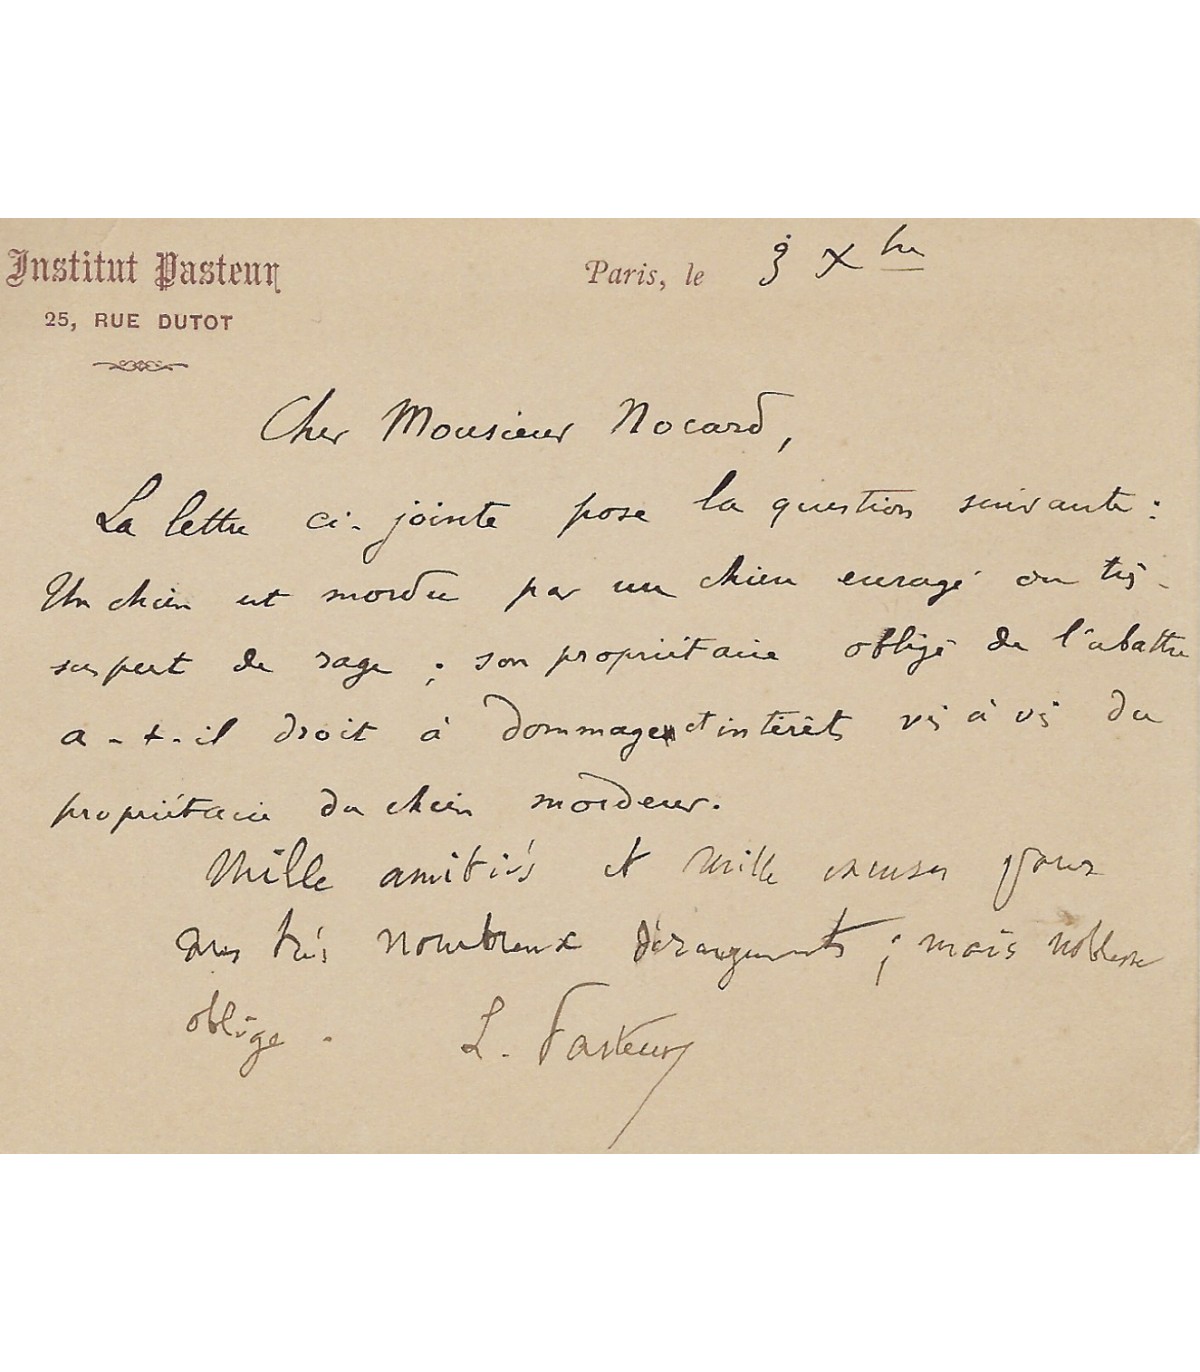 Institut Pasteur
25, RUE DUTOT
Paris, le 3 Xbre
Cher Monsieur Nocard,
La lettre ci-jointe pose la question suivante :
Un chien est mordu par un chien enragé ou très-
suspect de rage ; son propriétaire obligé de l'abattre
a-t-il droit à dommages et intérêts vis à vis du
propriétaire du chien mordeur.
Mille amitiés et mille excuses pour
mes très nombreux dérangements ; mais noblesse
oblige.
L. Pasteur